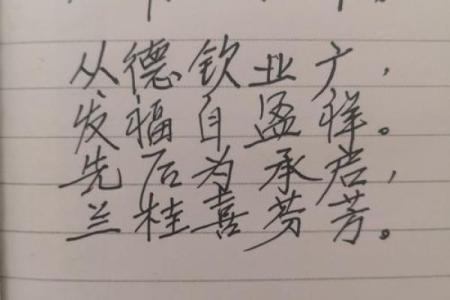 从德钦业广，
发福自盈祥。
先后为承启，
兰桂喜芬芳。